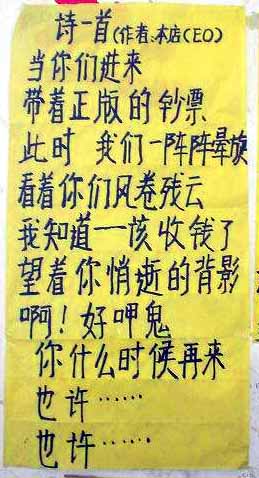 诗一首(作者:本店CEO)
当你们进来
带着正版的钞票
此时 我们一阵阵晕旋
看着你们风卷残云
我知道一该收钱了
望着你悄逝的背影
啊！好呷鬼
你什么时候再来
也许……
也许……